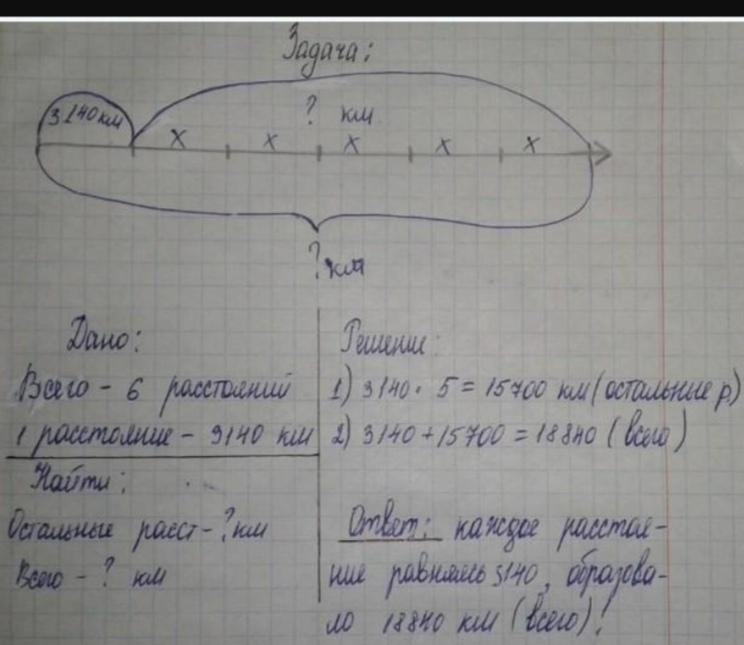 Задача:
3140 км
? км
x x x x x
? км
Дано:
Всего - 6 расстояний
1 расстояние - 3140 км
Найти:
Остальные расст - ? км
Всего - ? км
Решение:
1) 3140 · 5 = 15700 км (остальные р.)
2) 3140 + 15700 = 18840 (всего)
Ответ: каждое расстоя-
ние равнялось 3140, образова-
ло 18840 км (всего)!